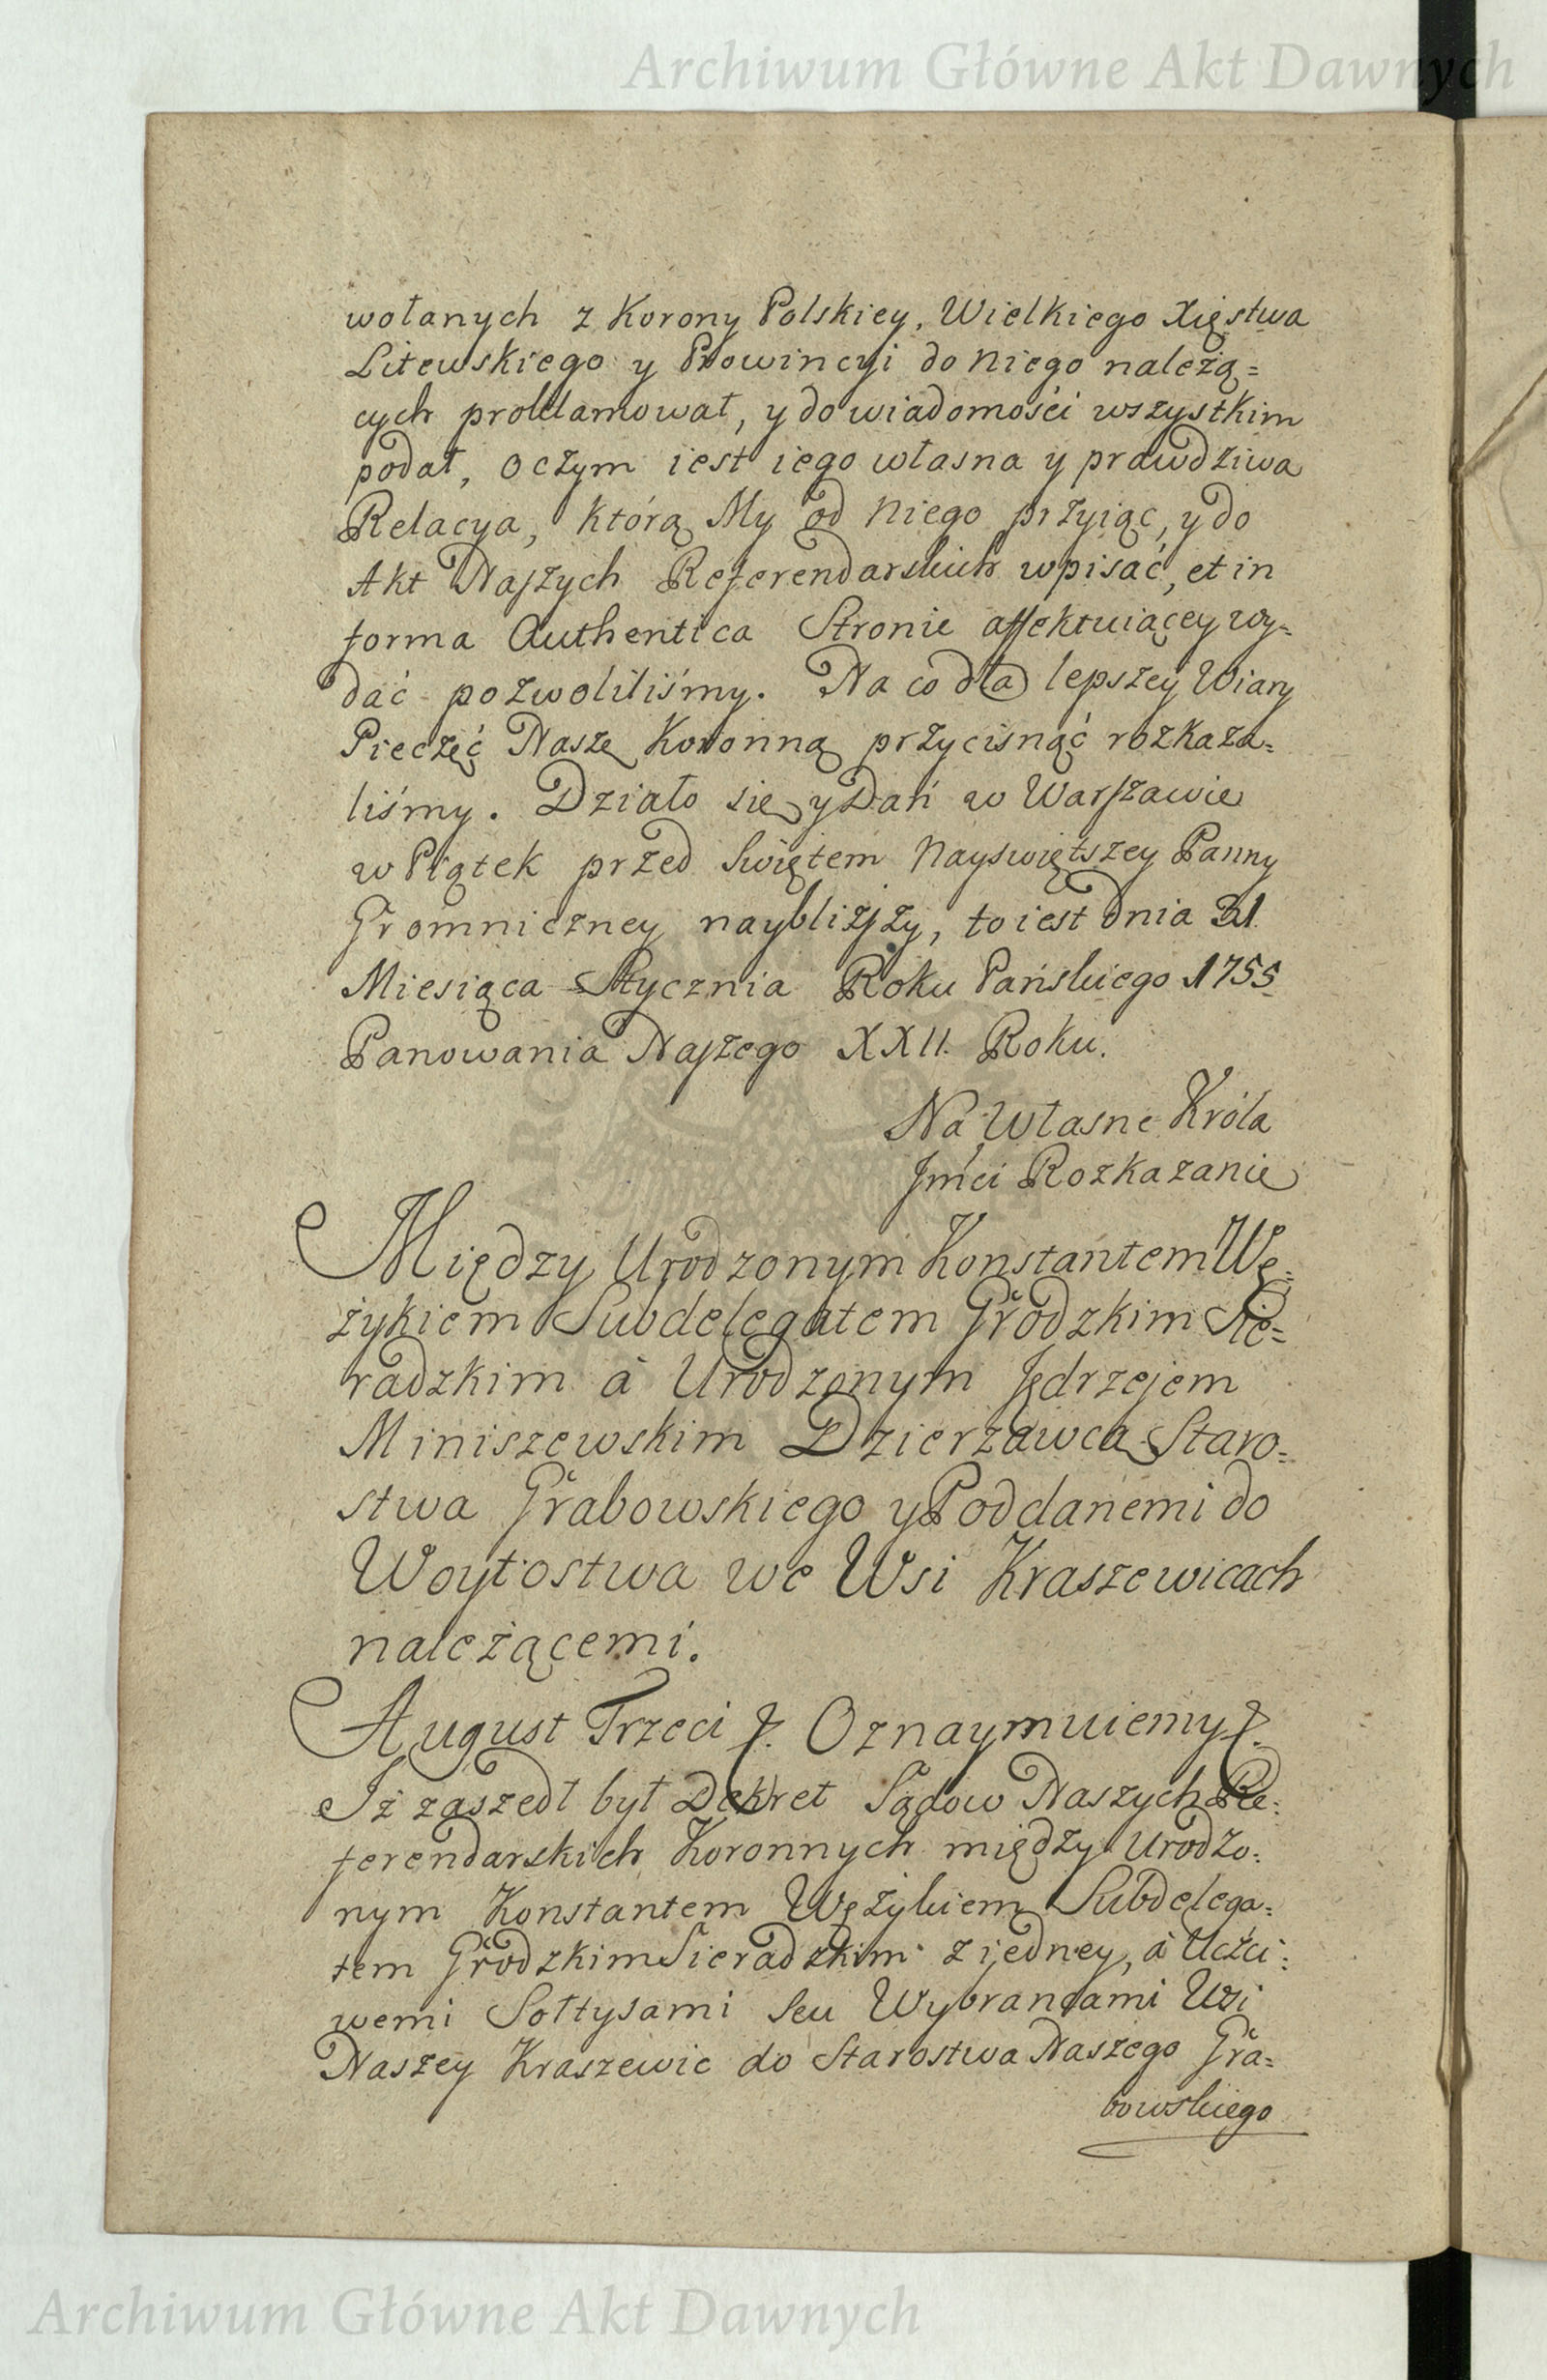 Archiwum Główne Akt Dawnych
wołanych z Korony Polskiey, Wielkiego Xięstwa
Litewskiego y Prowincyi do niego należą=
cych proklamował, y do wiadomości wszystkim
podał, oczym iest iego własna y prawdziwa
Relacya, którą My od niego przyiąc, y do
Akt Naszych Referendarskich wpisać, et in
forma Authentica Stronie affektuiącey wy=
dać pozwoliliśmy. Na co dla lepszey Wiary
Pieczęć Naszę Koronną przycisnąć rozkaza=
liśmy. Działo się y Dań w Warszawie
w Piątek przed Swiętem Nayswiętszey Panny
Gromniczney naybliższy, to iest dnia 31.
Miesiąca Stycznia Roku Pańskiego 1755
Panowania Naszego XXII. Roku.
Na Własne Króla
Jmći Rozkazanie
Między Urodzonym Konstantem Wę=
żykiem Subdelegatem Grodzkim Sie=
radzkim á Urodzonym Jędrzejem
Miniszewskim Dzierżawcą Staro=
stwa Grabowskiego y Poddanemi do
Woytostwa we Wsi Kraszewicach
należącemi.
August Trzeci &. Oznaymuiemy &.
Iż zaszedł był Dekret Sądow Naszych Re=
ferendarskich Koronnych między Urodzo=
nym Konstantem Wężykiem Subdelega=
tem Grodzkim Sieradzkim z iedney, á Uczci=
wemi Sołtysami seu Wybrańcami Wsi
Naszey Kraszewic do Starostwa Naszego Gra=
bowskiego
Archiwum Główne Akt Dawnych